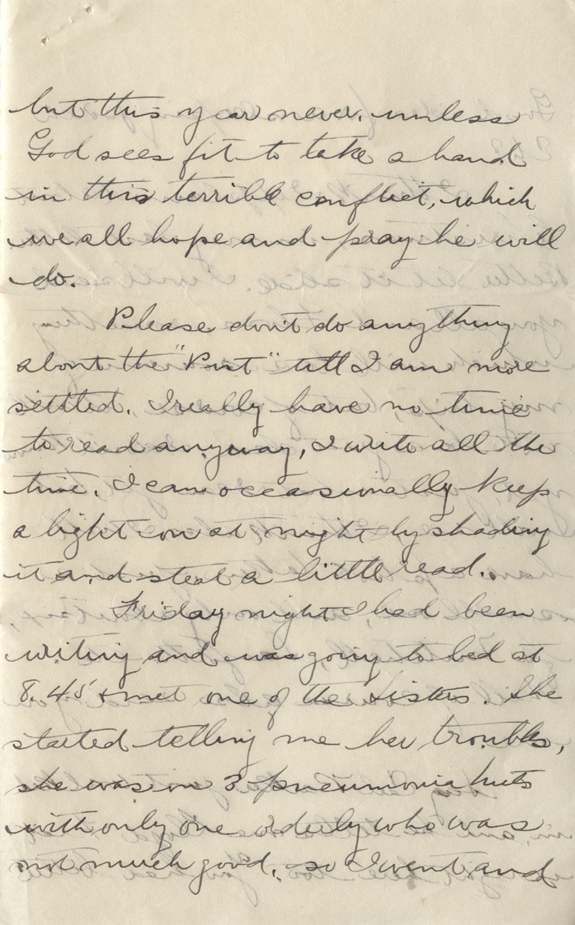 but this year never, unless
God sees fit to take a hand
in this terrible conflict, which
we all hope and pray he will
do.
Please don't do anything
about the "Post" till I am more
settled. I really have no time
to read anyway, I write all the
time. I can occasionally keep
a light on at night by shading
it and steal a little read.
Friday night I had been
writing and was going to bed at
8.45 & met one of the Sisters. She
started telling me her troubles,
she was in 3 pneumonia huts
with only one orderly who was
not much good, so I went and